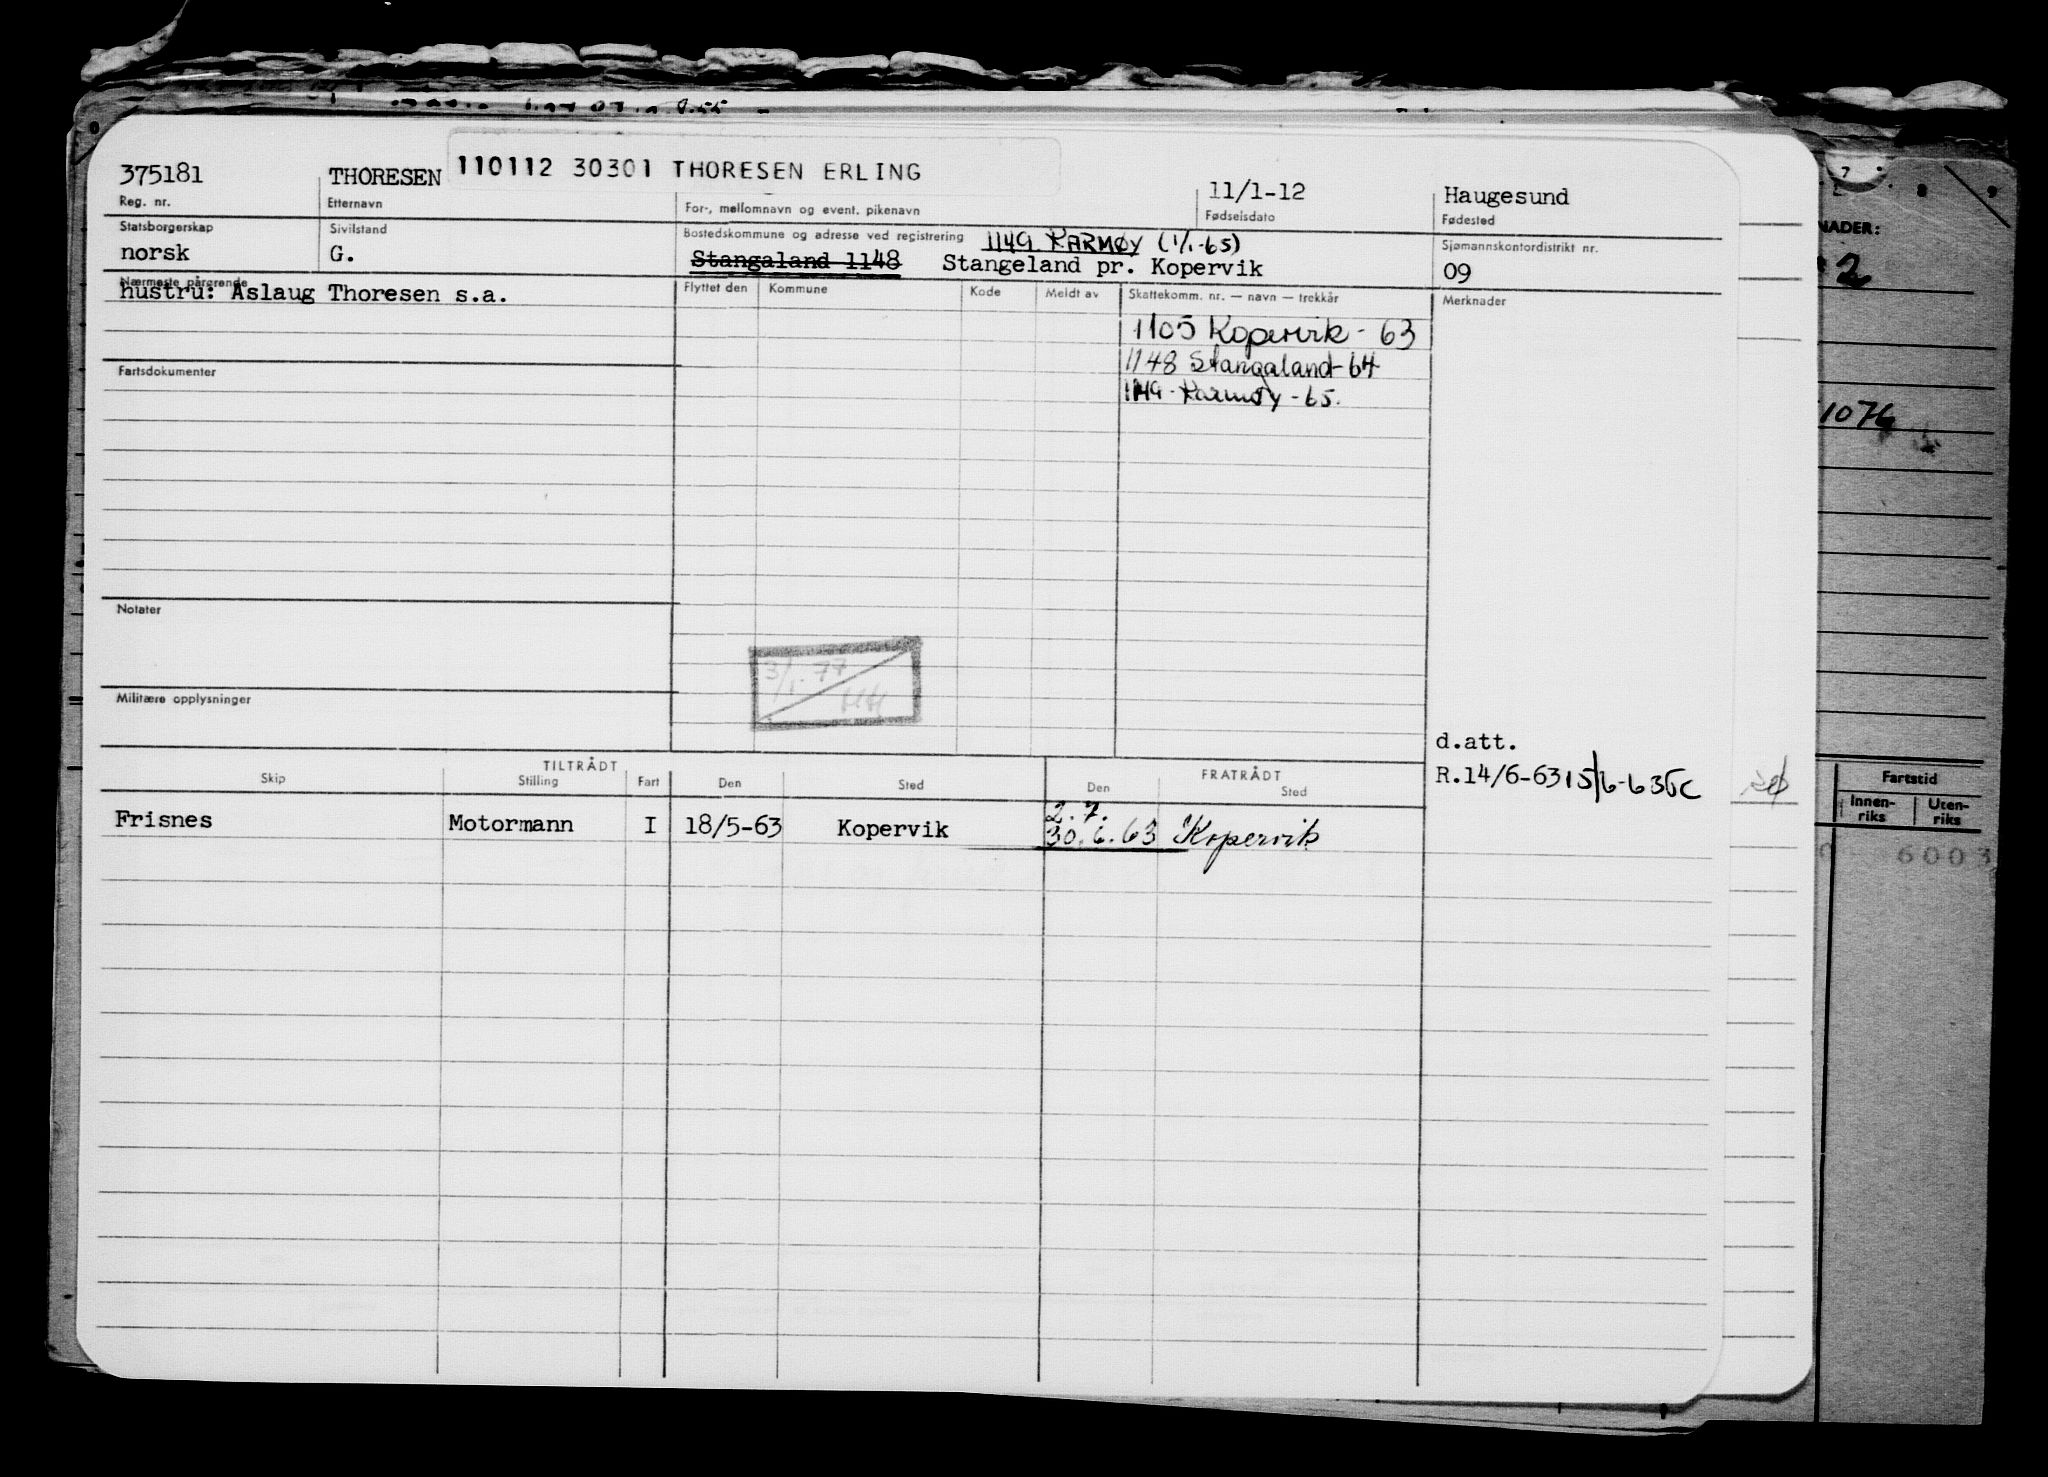 375181 THORESEN 110112 30301 THORESEN ERLING 11/1-12 Haugesund
Reg. nr. Etternavn For-, mellomnavn og event. pikenavn Fødselsdato Fødested
Statsborgerskap Sivilstand Bostedskommune og adresse ved registrering 1149 KARMØY (1/1-65) Sjømannskontordistrikt nr.
norsk G. Stangaland 1148 Stangeland pr. Kopervik 09
Nærmeste pårørende Flyttet den Kommune Kode Meldt av Skattekomm. nr. — navn — trekkår Merknader
hustru: Aslaug Thoresen s.a.
1105 Kopervik - 63
1148 Stangaland - 64
1149 - Karmøy - 65.
Fartsdokumenter
Notater
3/1-77
HH
Militære opplysninger
d.att.
R.14/6-63 15/6-63
TILTRÅDT FRATRÅDT
Skip Stilling Fart Den Sted Den Sted
2.7.
Frisnes Motormann I 18/5-63 Kopervik 30.6.63 Kopervik
7 8 9
NADER:
2
1076
Fartstid
Innen-
riks
Uten-
riks
6003